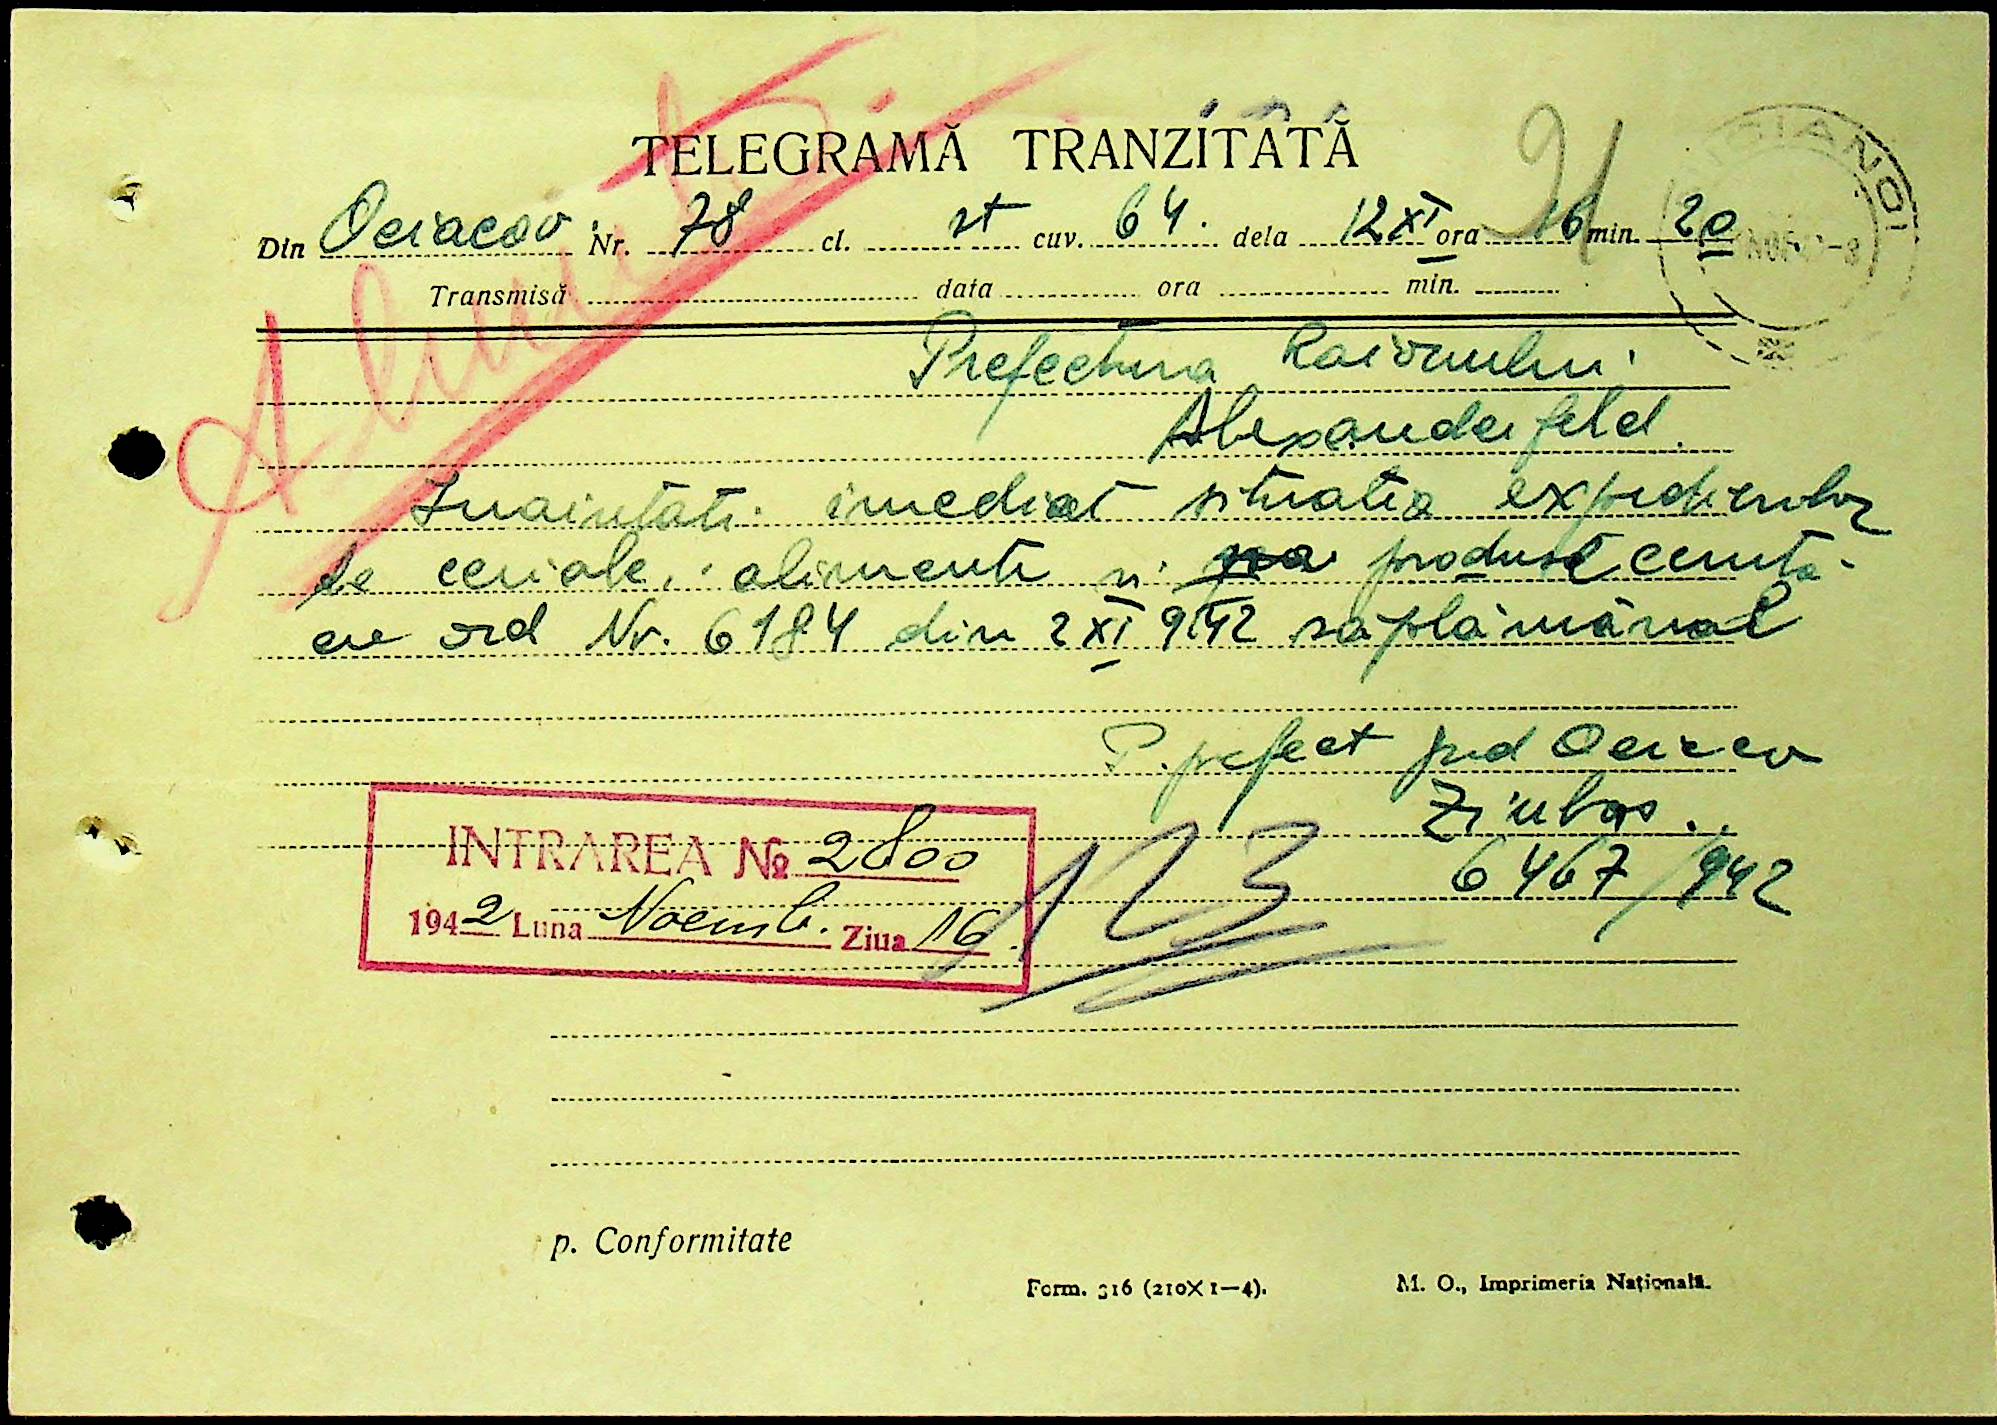 TELEGRAMĂ TRANZITATĂ
Din Oceacov Nr. 78 cl. st cuv. 64. dela 12 XI ora 16 min. 20
Transmisă data ora min.
Prefectura Raionului
Alexanderfeld.
Inaintati imediat situatia expedierilor
de ceriale, alimente si produse ceruta
cu ord Nr. 6184 din 2 XI 942 saptămânal
P. prefect jud Oceacov
6467/942
INTRAREA No 2800
1942 Luna Noemb. Ziua 16
123
p. Conformitate
Form. 316 (210X1—4). M. O., Imprimeria Națională.